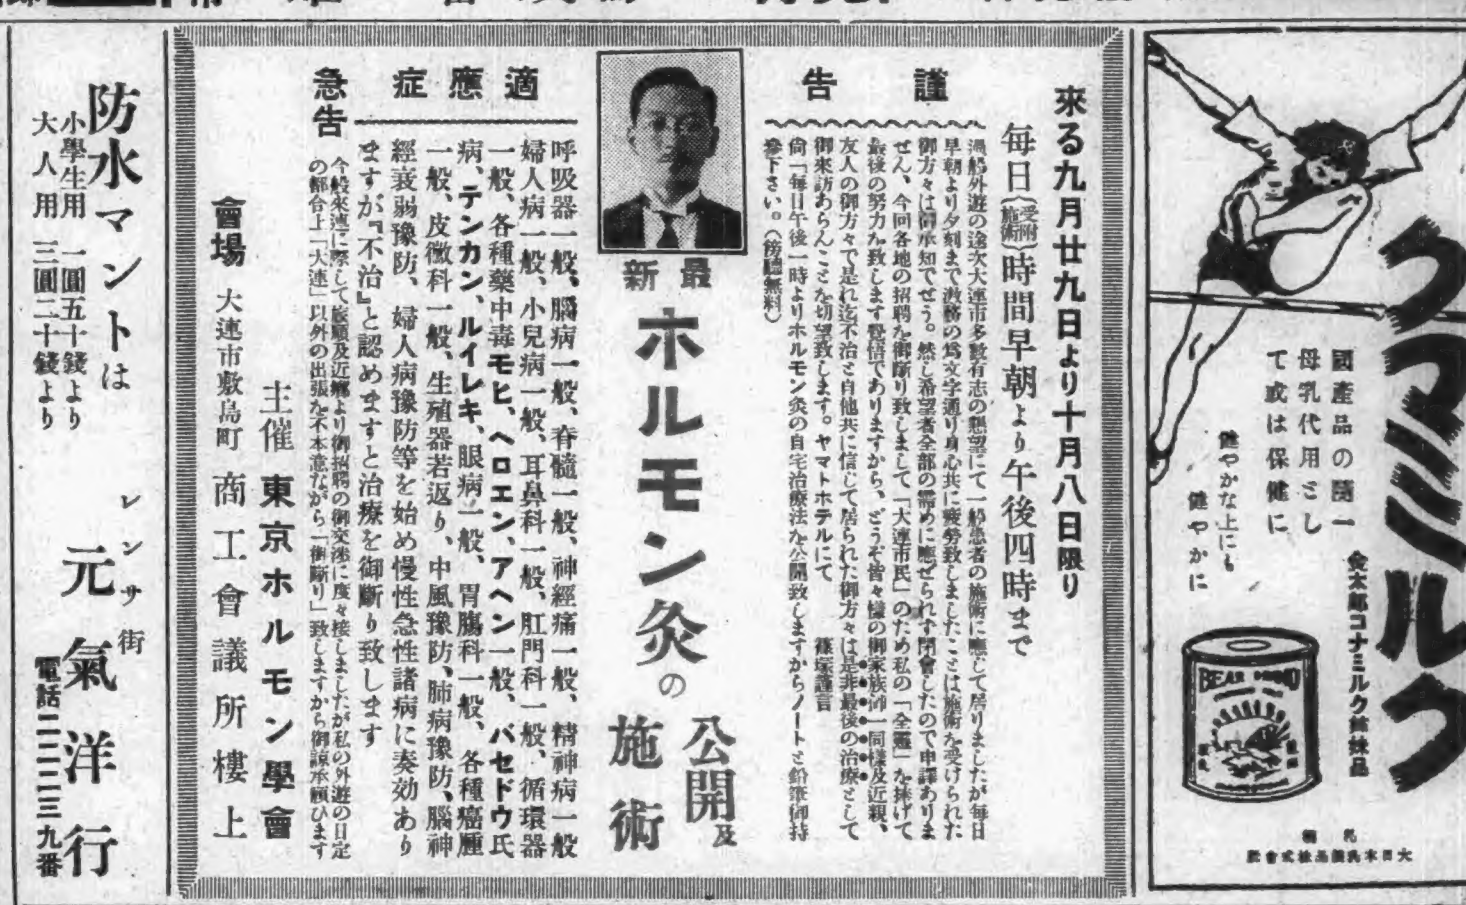 クマミルク
國産品の隨一
母乳代用とし
て或は保健に
健やかな上にも
健やかに
金太郎コナミルク姉妹品
BEAR BRAND
來る九月廿九日より十月八日限り
毎日(受附施術)時間早朝より午後四時まで
謹告
過般外遊の途次大連市多數有志の懇望にて一般患者の施術に應じて居りましたが毎日
早朝より夕刻まで激務の爲文字通り身心共に疲勞致しましたことは施術を受けられた
御方々は御承知でせう。然し希望者全部の需めに應ぜられず閉會したので申譯ありま
せん、今回各地の招聘を御斷り致しまして「大連市民」のため私の「全靈」を捧げて
最後の努力を致します覺悟でありますから、どうぞ皆々樣の御家族御一同樣及近親、
友人の御方々で是れ迄不治と自他共に信じて居られた御方々は是非最後の治療として
御來訪あらんことを切望致します。ヤマトホテルにて 篠塚謹言
尚「毎日午後一時よりホルモン灸の自宅治療法を公開致しますからノートと鉛筆御持
參下さい。(傍聽無料)
最新
ホルモン灸の
公開及
施術
適應症
呼吸器一般、腦病一般、脊髓一般、神經痛一般、精神病一般
婦人病一般、小兒病一般、耳鼻科一般、肛門科一般、循環器
一般、各種藥中毒モヒ、ヘロエン、アヘン一般、バセドウ氏
病、テンカン、ルイレキ、眼病一般、胃腸科一般、各種癌腫
一般、皮黴科一般、生殖器若返り、中風豫防、肺病豫防、腦神
經衰弱豫防、婦人病豫防等を始め慢性急性諸病に奏効あり
ますが『不治』と認めますと治療を御斷り致します
急告
今般來連に際して旅順及近鄕より御招聘の御交渉に度々接しましたが私の外遊の日定
の都合上「大連」以外の出張を不本意ながら「御斷り」致しますから御諒承願ひます
主催 東京ホルモン學會
會場 大連市敷島町 商工會議所樓上
防水マントは
小學生用 一圓五十錢より
大人用 三圓二十錢より
レンサ街
元氣洋行
電話二二二三九番